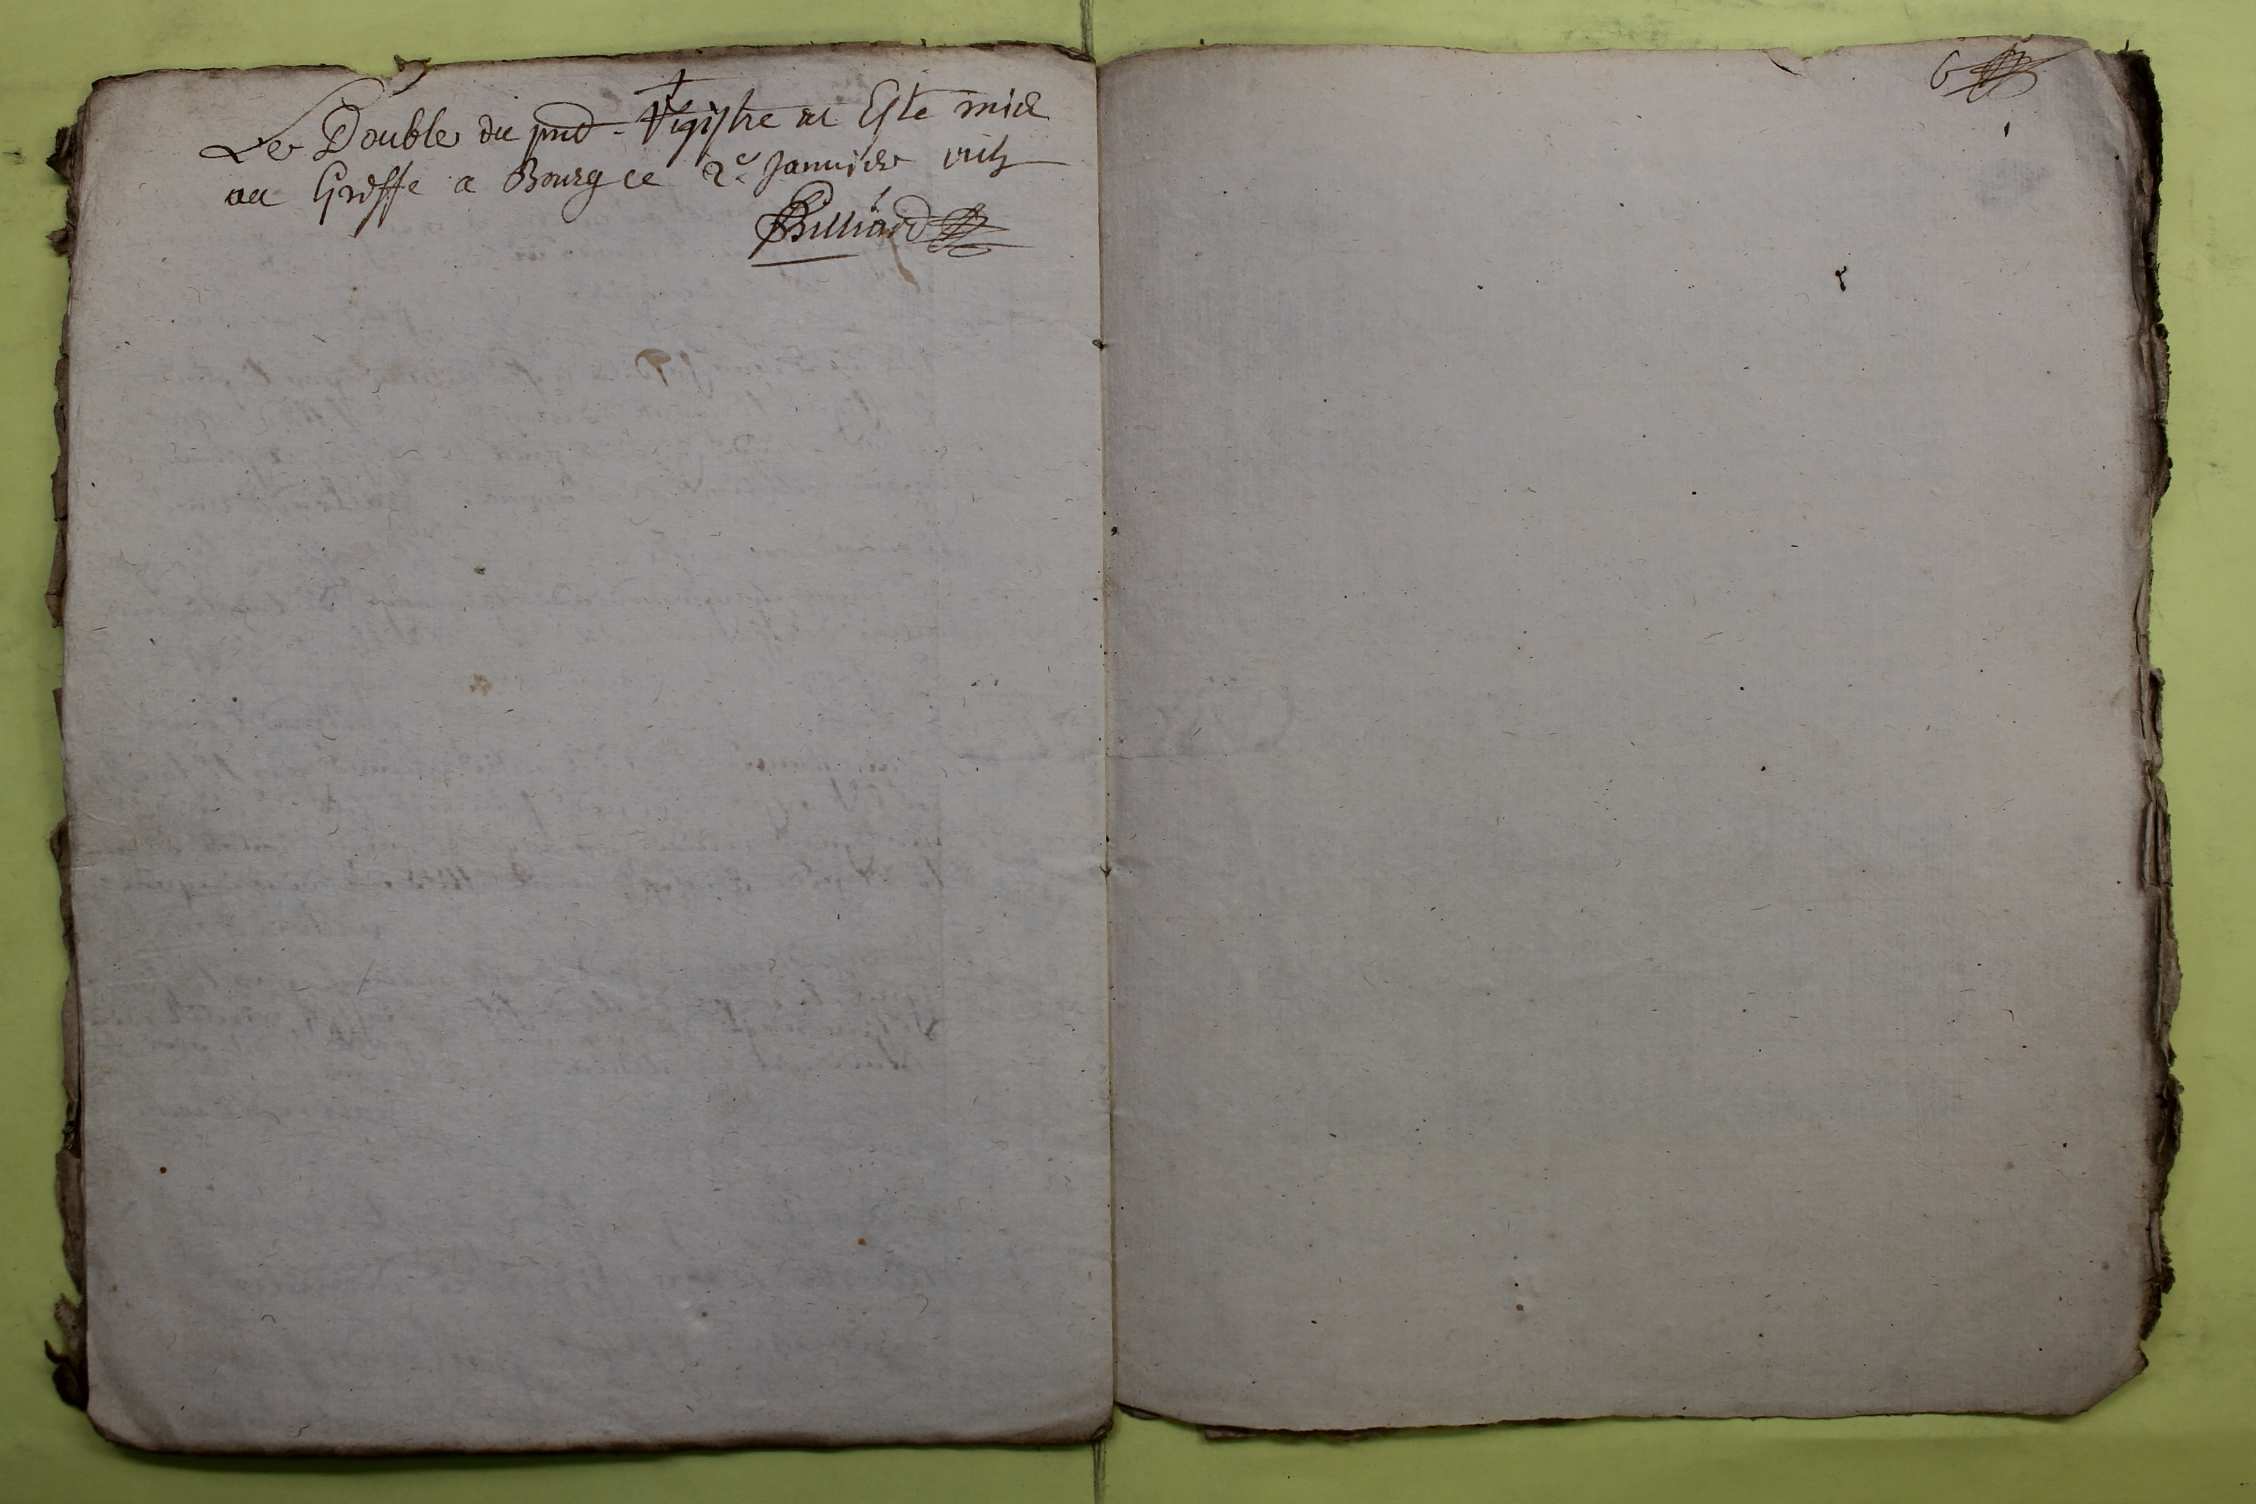 Le Double du pnt Registre at Este mis
au Greffe a Bourg ce 2e Janvier
Billiard
6